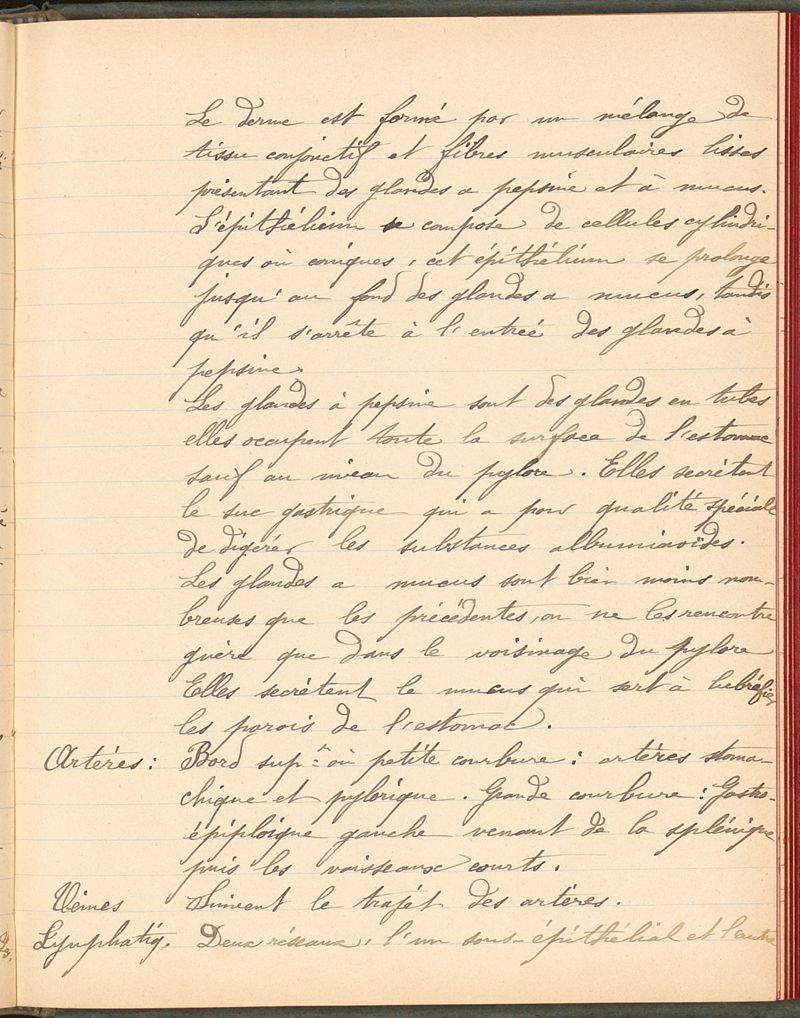 Le derme est formé par un mélange de
tissu conjonctif et fibres musculaires lisses
présentant des glandes a pepsine et à mucus.
L'épithélium se compose de cellules cylindri-
ques où coniques, cet épithélium se prolonge
jusqu'au fond des glandes a mucus, tandis
qu'il s'arrête à l'entrée des glandes à
pepsine.
Les glandes à pepsine sont des glandes en tubes
elles occupent toute la surface de l'estomac
sauf au niveau du pylore. Elles secrétent
le suc gastrique qui a pour qualité spéciale
de digérer les substances albuminoïdes.
Les glandes a mucus sont bien moins nom-
breuses que les précédentes, on ne les rencontre
guère que dans le voisinage du pylore
Elles secrétent le mucus qui sert à lubréfier
les parois de l'estomac.
Artères: Bord supr où petite courbure: artères stoma-
chique et pylorique. Grande courbure: Gastro-
épiploique gauche venant de la splénique
puis les vaisseaux courts.
Veines Suivent le trajet des artères.
Lymphatiq. Deux réseaux, l'un sous-épithélial et l'autre